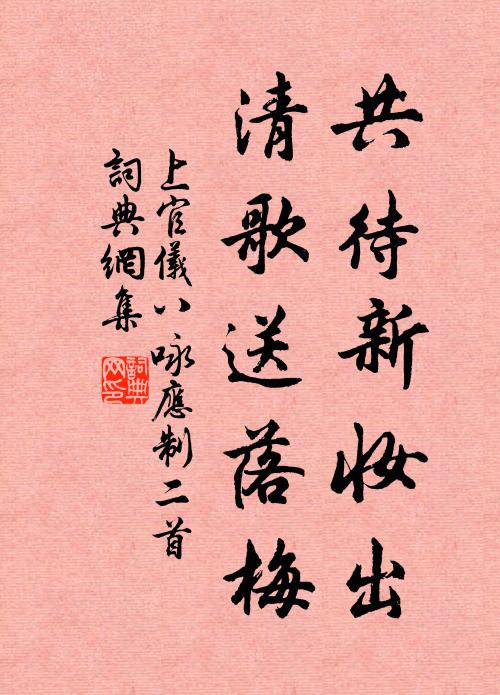 共待新妝出
清歌送落梅
上官儀八咏應制二首
詞典網集
詞典网印